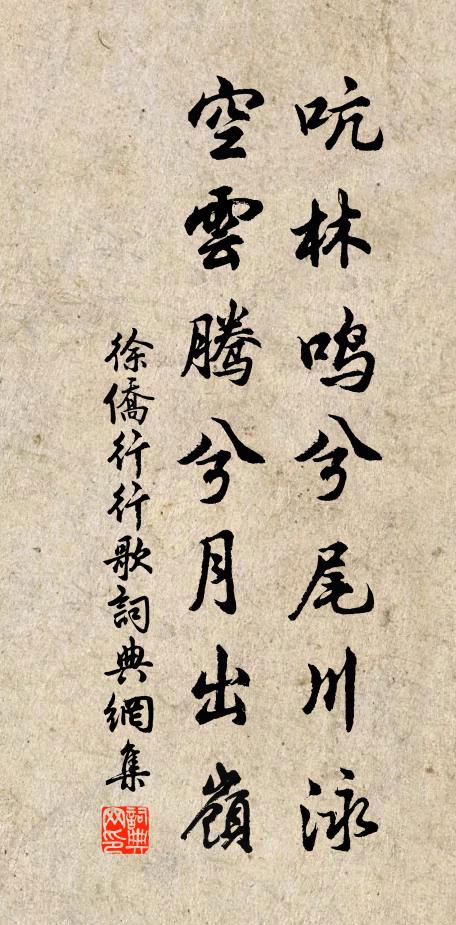 吭林鸣兮尾川泳
空雲腾兮月出嶺
徐僑行行歌詞典網集
詞典网印